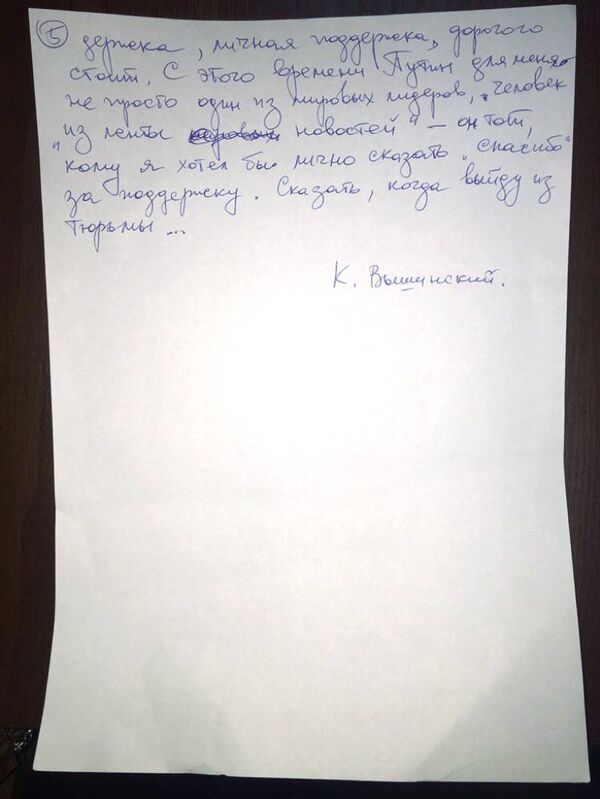 5 держка, личная поддержка, дорогого
стоит. С этого времени Путин для меня
не просто один из мировых лидеров, „человек
из ленты новостей" – он тот,
кому я хотел бы лично сказать „спасибо"
за поддержку. Сказать, когда выйду из
тюрьмы ...
К. Вышинский.